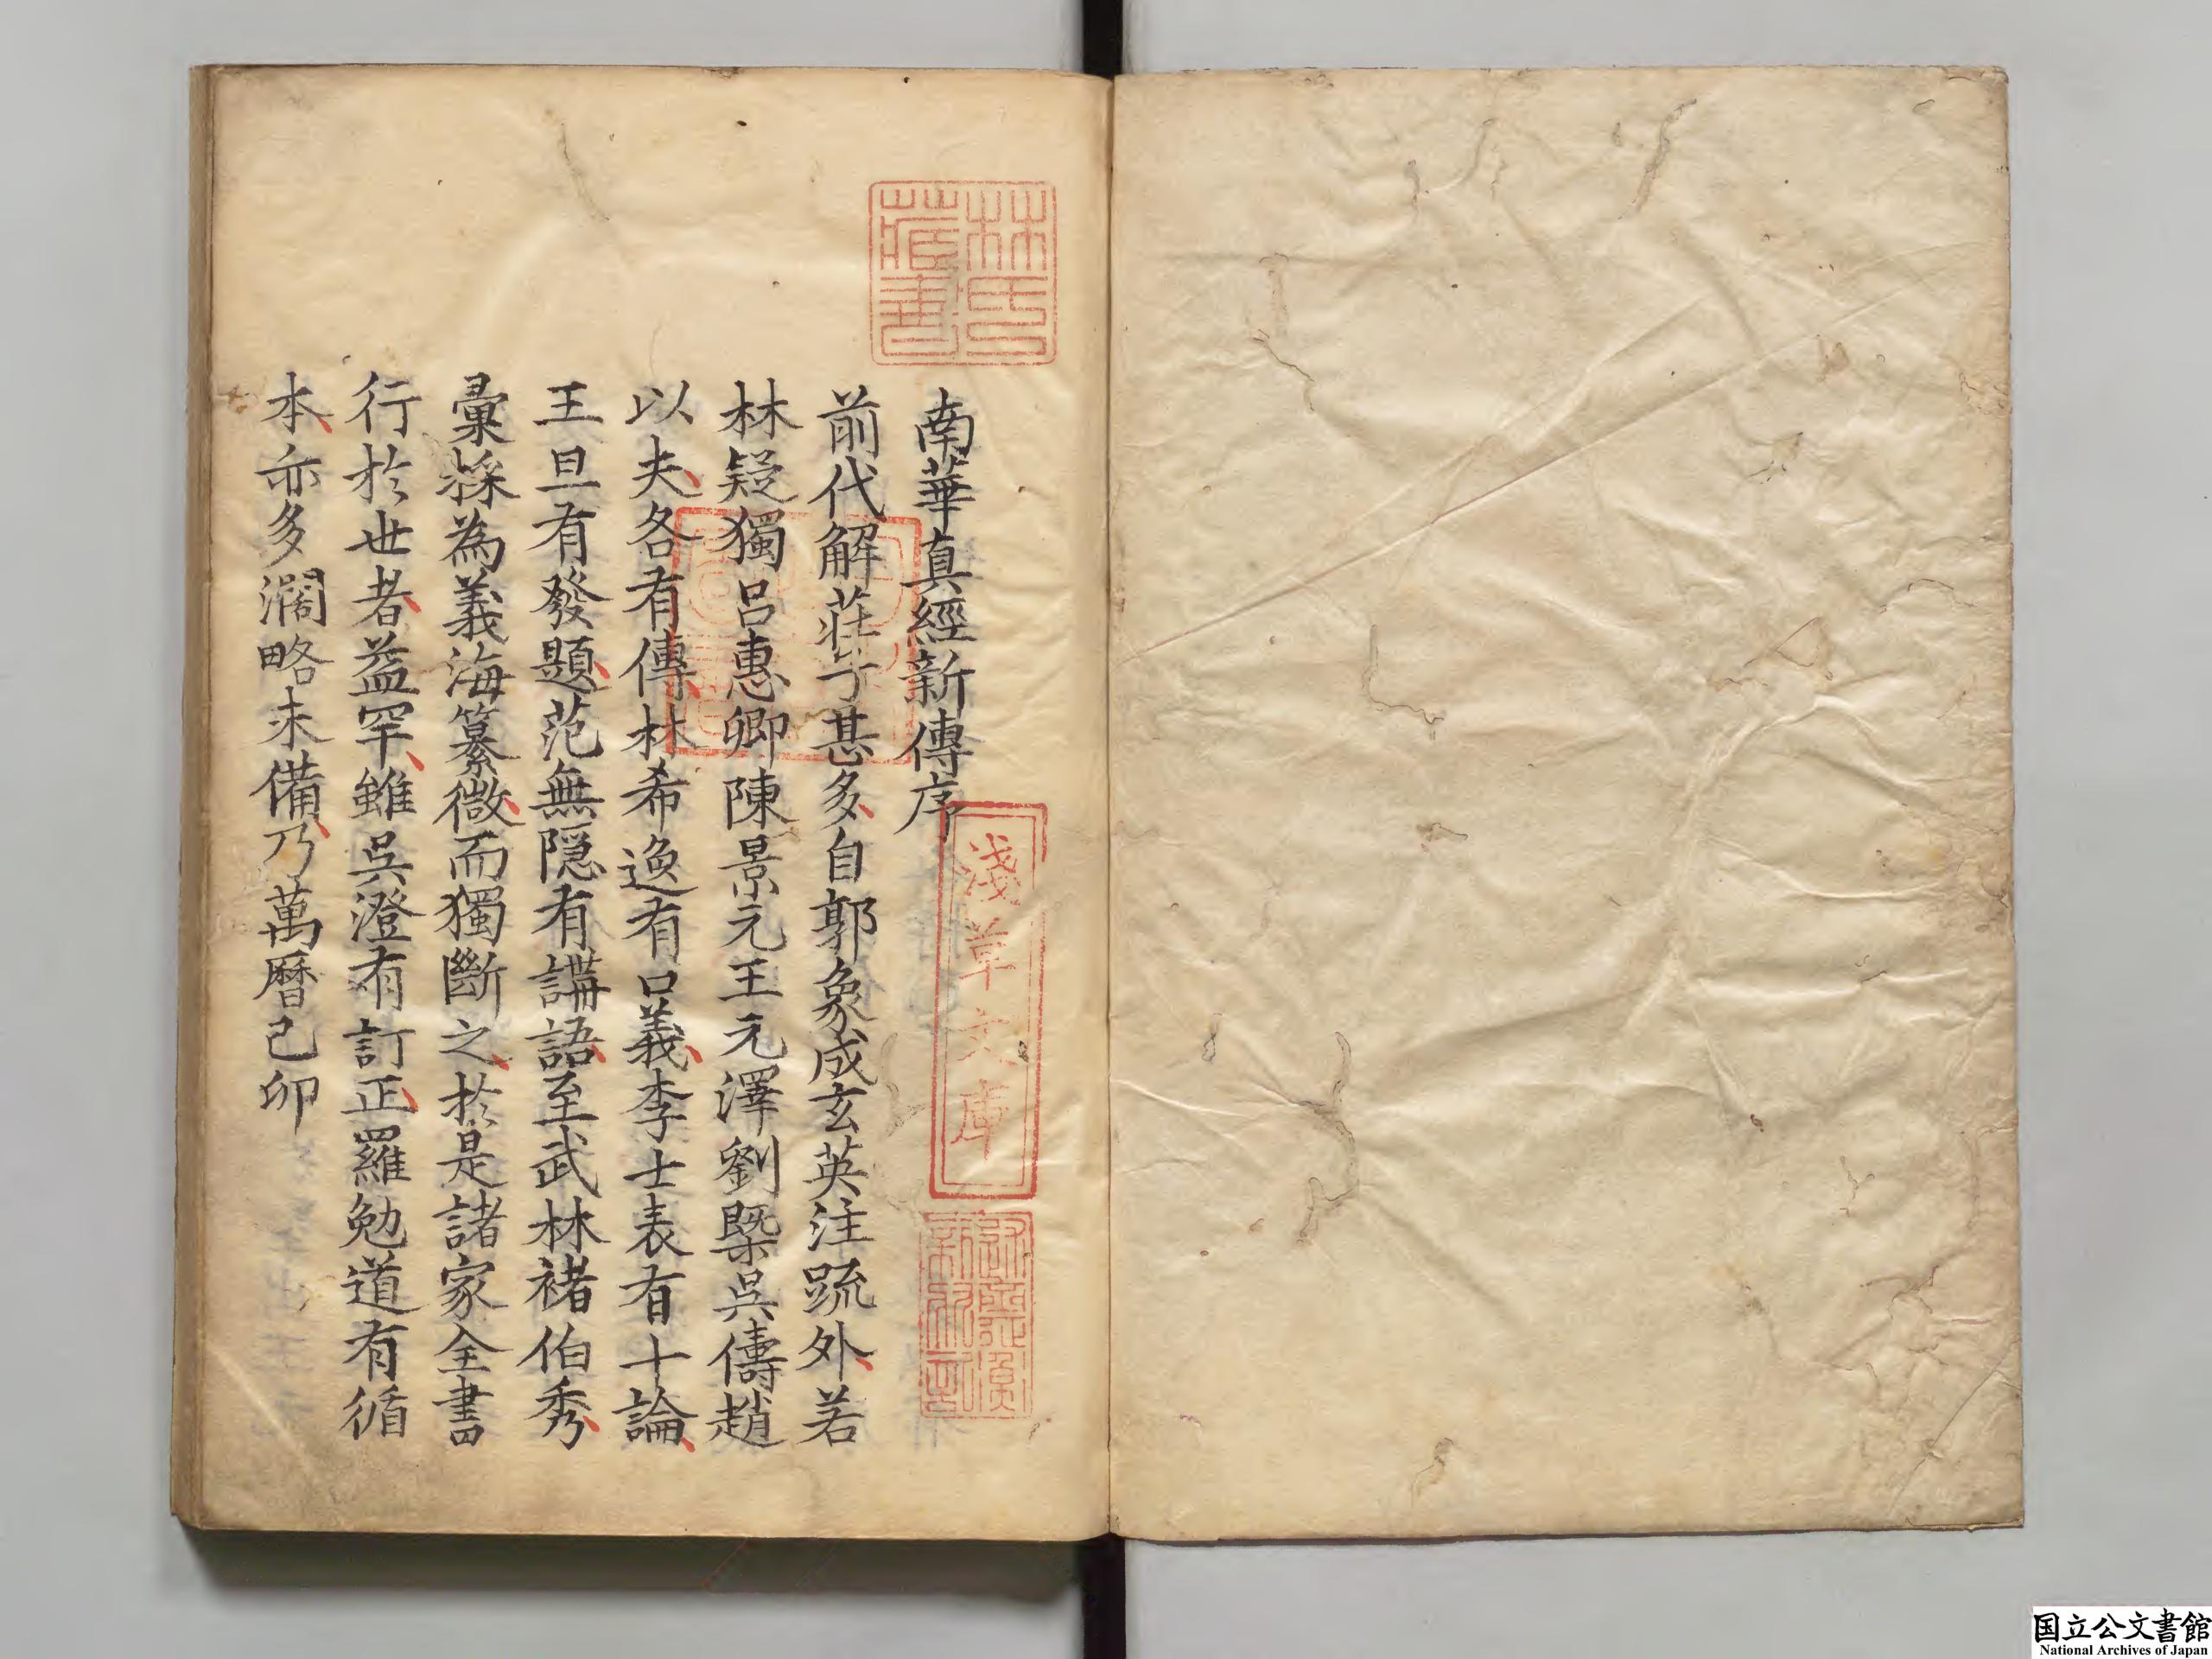 南華真經新傳序
前代解莊子甚多自郭象成玄英注疏外若
林疑獨呂惠卿陳景元王元澤劉槩吳儔趙
以夫各有傳林希逸有口義李士表有十論
王旦有發題范無隐有講語至武林褚伯秀
彙採為義海纂微而獨斷之於是諸家全書
行於世者益罕雖吳澄有訂正羅勉道有循
本亦多濶略未備乃萬曆己卯
林氏藏書
淺草文庫
国立公文書館
National Archives of Japan